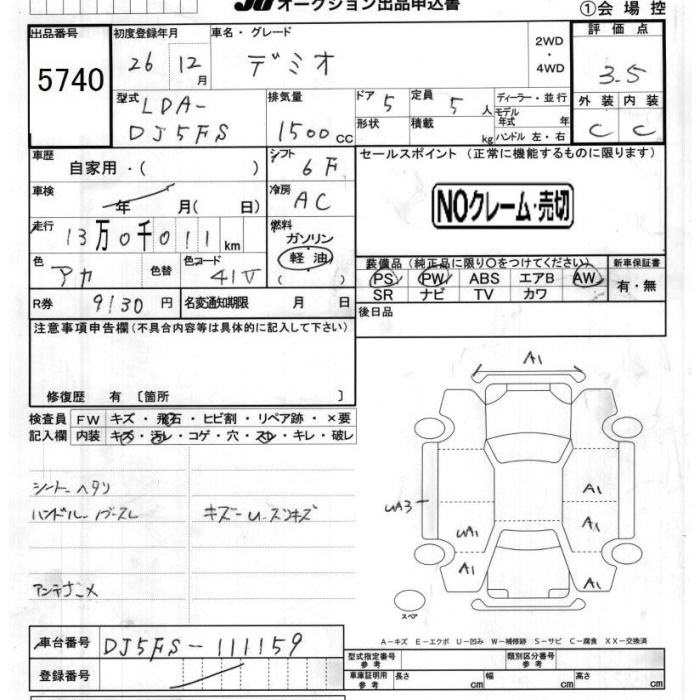 JU オークション出品申込書
①会場控
出品番号 5740
初度登録年月 26 12月
車名・グレード デミオ
2WD・4WD
評価点 3.5
外装 C 内装 C
型式 LDA-DJ5FS
排気量 1500cc
ドア 5
定員 5人
形状
積載 kg
ディーラー・並行
モデル年式 年
ハンドル 左・右
車歴 自家用・( )
シフト 6F
セールスポイント (正常に機能するものに限ります)
NOクレーム・売切
車検 年 月(日)
冷房 AC
走行 13万0千011km
燃料 ガソリン 軽油 ( )
色 アカ
色替
色コード 41V
装備品(純正品に限り〇をつけてください)
PS PW ABS エアB AW
SR ナビ TV カワ
新車保証書 有・無
R券 9130円
名変通知期限 月 日
後日品
注意事項申告欄(不具合内容等は具体的に記入して下さい)
修復歴 有 [箇所 ]
検査員記入欄
FW キズ・飛石・ヒビ割・リペア跡・×要
内装 キズ・汚レ・コゲ・穴・スレ・キレ・破レ
シートヘタリ
ハンドル
キズーU.スリキズ
A1
A1
UA3
A1
UA1
A1
A1
スペア
A-キズ E-エクボ U-凹み W-補修跡 S-サビ C-腐食 XX-交換済
車台番号 DJ5FS-111159
登録番号
型式指定番号 参考
類別区分番号 参考
車庫証明用 参考 長さ cm 幅 cm 高さ cm